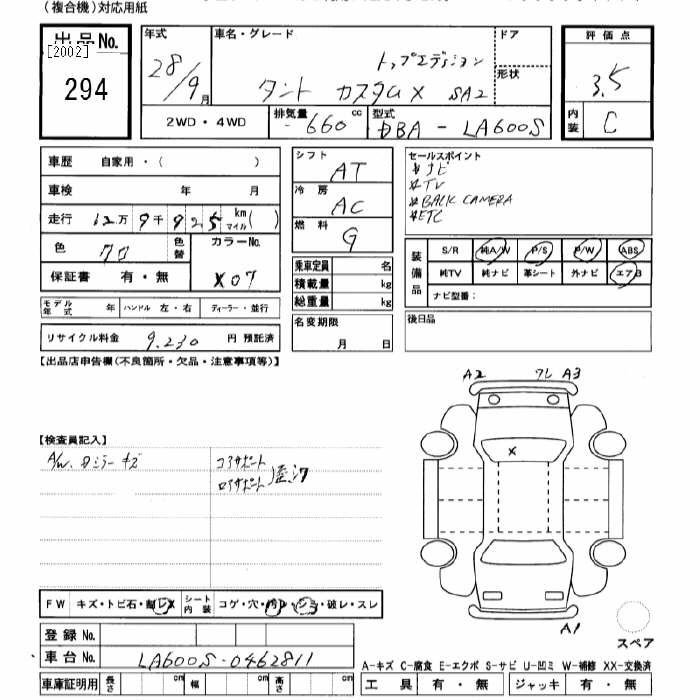 (複合機)対応用紙
出品No.
[2002]
294
年式
28/9月
車名・グレード
トップエディション
タント カスタムX SA2
ドア
形状
評価点
3.5
内装
C
2WD・4WD
排気量
660 cc
型式
DBA - LA600S
車歴 自家用・( )
車検 年 月
走行 12万9千925 km マイル( )
色 クロ 色替 カラーNo.
X07
保証書 有・無
モデル年式 年 ハンドル 左・右 ディーラー・並行
リサイクル料金 9.230 円 預託済
シフト
AT
冷房
AC
燃料
G
乗車定員 名
積載量 kg
総重量 kg
名変期限
月 日
セールスポイント
*ナビ
*TV
*BACK CAMERA
*ETC
装備品
S/R 純A/W P/S P/W ABS
純TV 純ナビ 革シート 外ナビ エアB
ナビ型番:
後日品
【出品店申告欄(不良箇所・欠品・注意事項等)】
A2 ワレ A3
X
【検査員記入】
A/W. ミラー キズ
コアサポート
ロアサポート
A1
スペア
FW キズ・トビ石・ワレX シート内装 コゲ・穴・汚レ・シミ・破レ・スレ
登録No.
車台No. LA600S-0462811
車庫証明用 長さ cm 幅 cm 高さ cm
A-キズ C-腐食 E-エクボ S-サビ U-凹ミ W-補修 XX-交換済
工具 有・無 ジャッキ 有・無